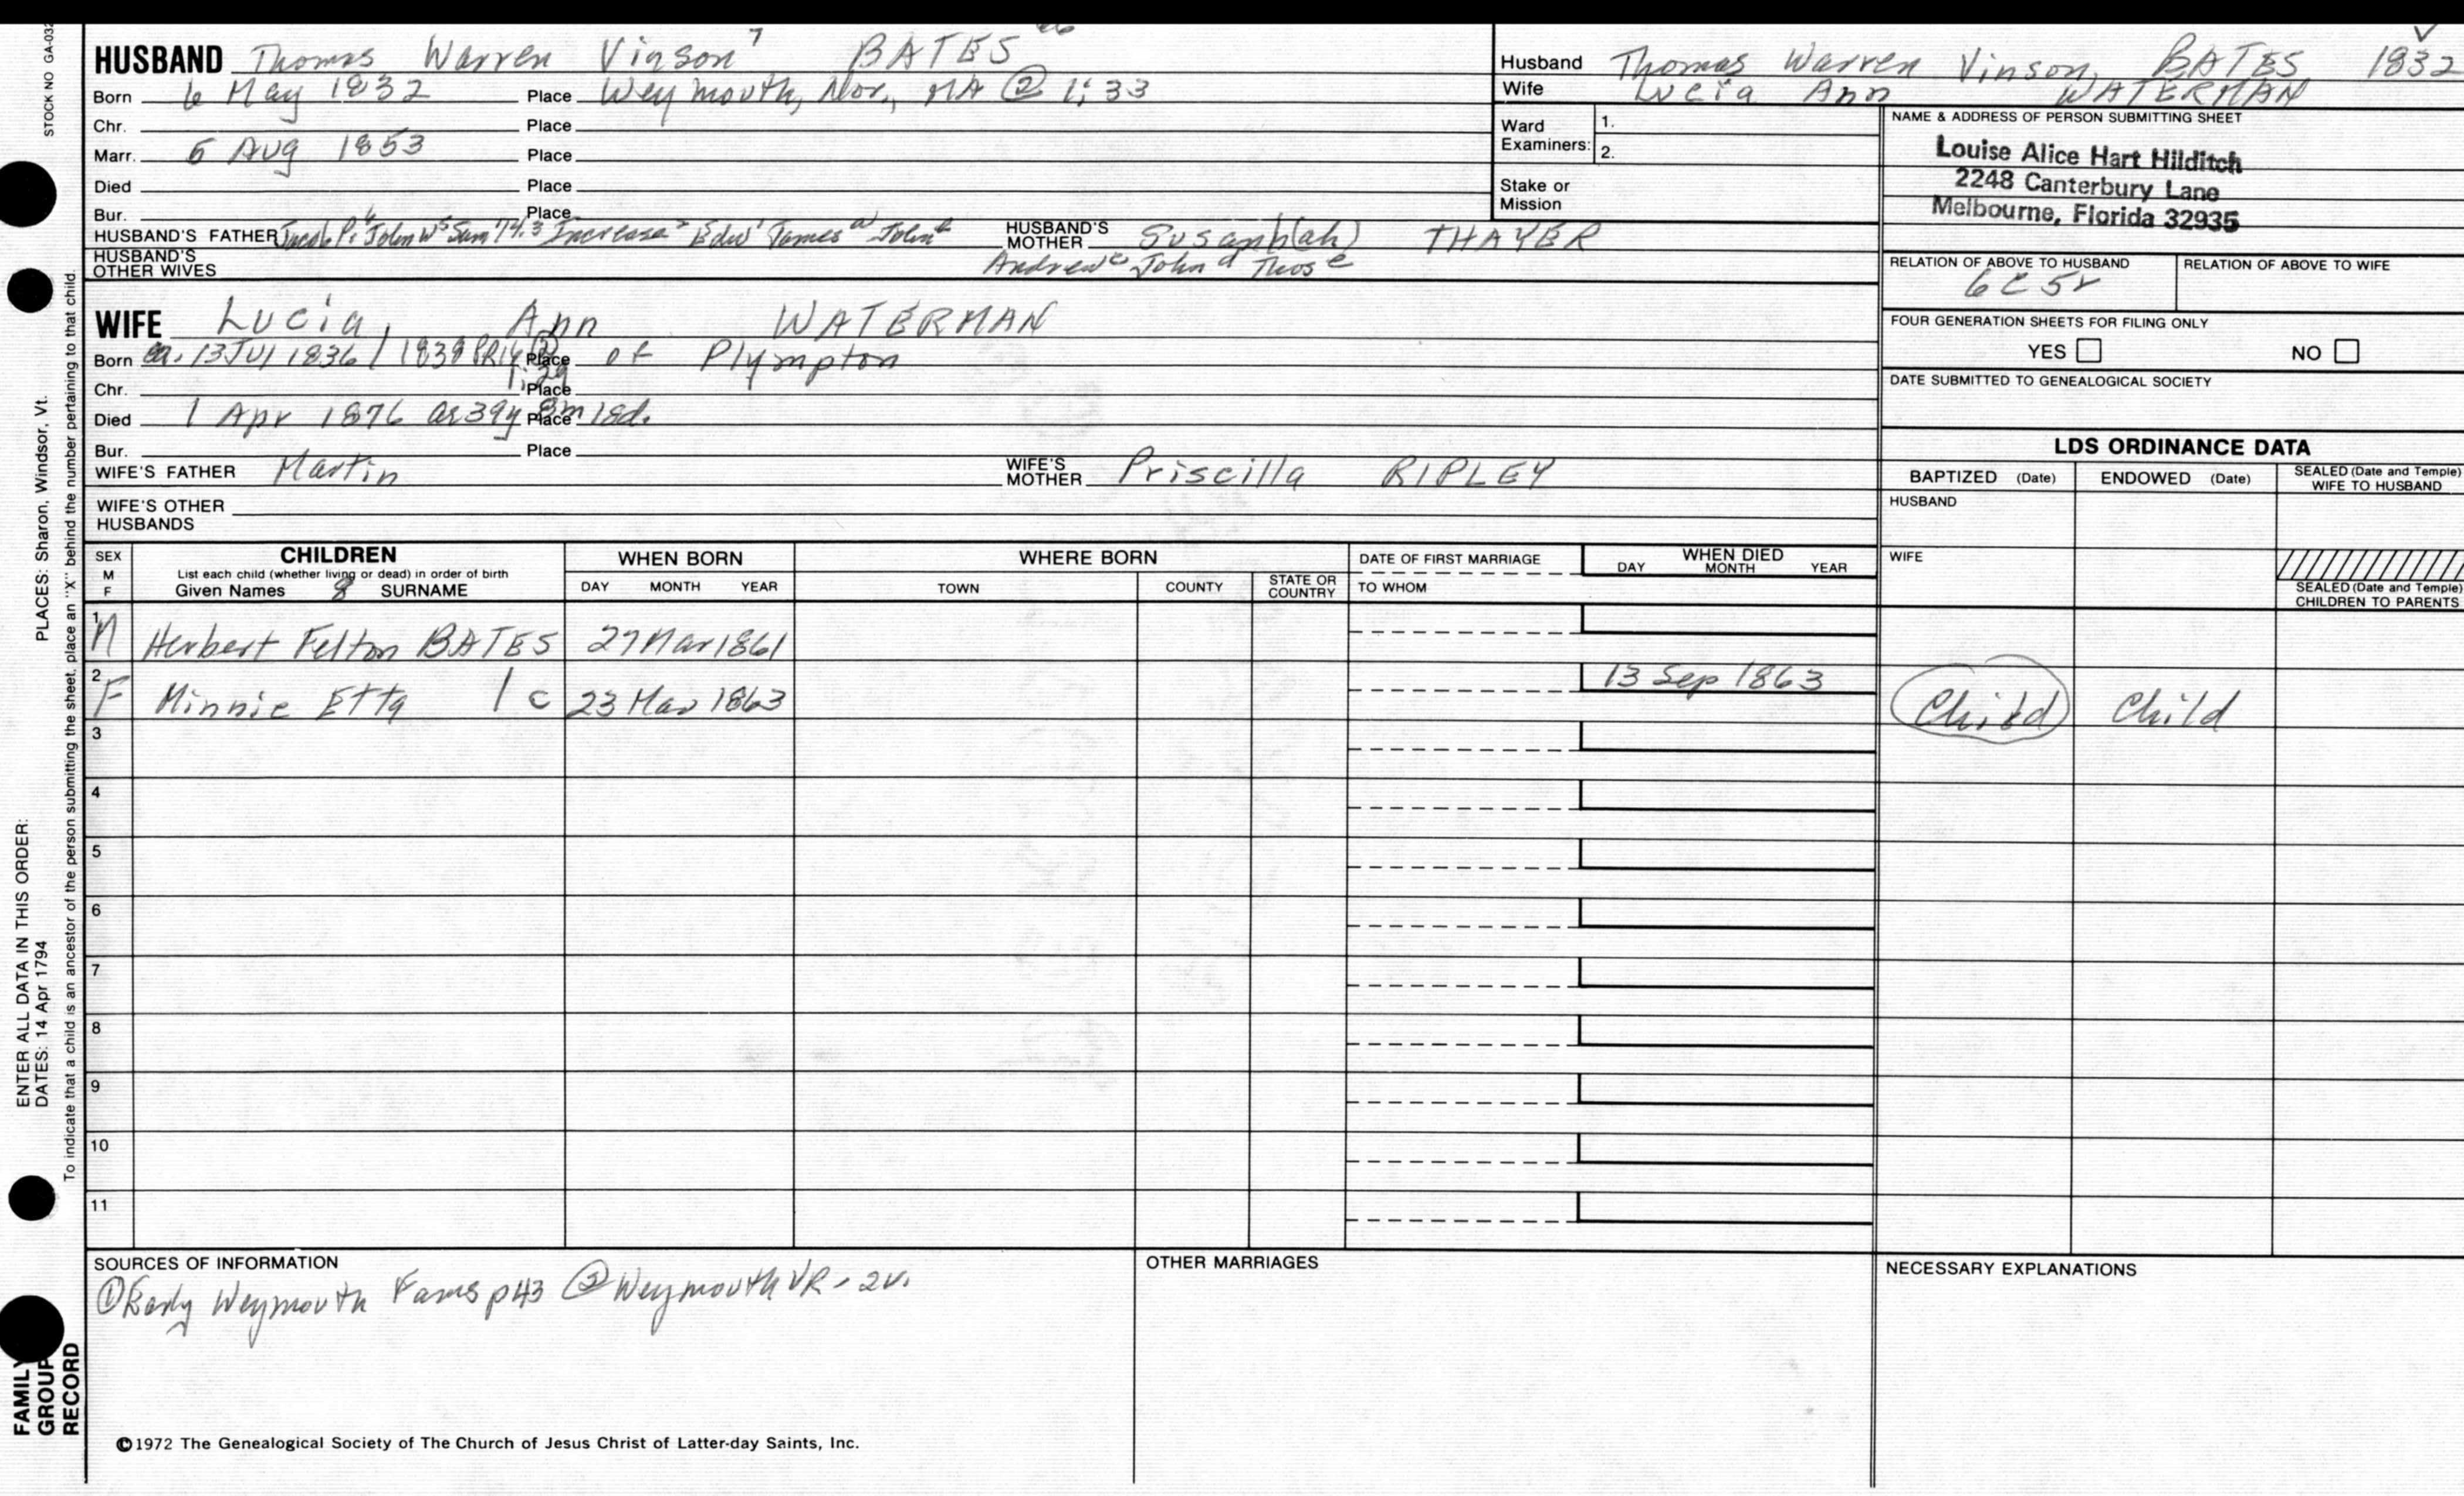 STOCK NO GA-032
HUSBAND Thomas Warren Vinson 7 BATES
Born 6 May 1832 Place Weymouth, Nor., MA @ 1:33
Chr. Place
Marr. 5 Aug 1853 Place
Died Place
Bur. Place
HUSBAND'S FATHER Jacob P. 6 John W 5 Sam 74.3 Increase 2 Edw 1 James a John b
HUSBAND'S MOTHER Susanh(ah) THAYER
HUSBAND'S OTHER WIVES Andrew c John d Thos e
Husband Thomas Warren Vinson, BATES 1832
Wife Lucia Ann WATERMAN
Ward Examiners: 1.
2.
Stake or Mission
NAME & ADDRESS OF PERSON SUBMITTING SHEET
Louise Alice Hart Hilditch
2248 Canterbury Lane
Melbourne, Florida 32935
RELATION OF ABOVE TO HUSBAND RELATION OF ABOVE TO WIFE
6C 5r
FOUR GENERATION SHEETS FOR FILING ONLY
YES NO
DATE SUBMITTED TO GENEALOGICAL SOCIETY
WIFE Lucia, Ann WATERMAN
Born ca. 13 Jul 1836 / 1838 Place of Plympton
1:29
Chr. Place
Died 1 Apr 1876 ae 39y Place 8m 18d.
Bur. Place
WIFE'S FATHER Martin
WIFE'S MOTHER Priscilla RIPLEY
WIFE'S OTHER HUSBANDS
LDS ORDINANCE DATA
BAPTIZED (Date) ENDOWED (Date) SEALED (Date and Temple) WIFE TO HUSBAND
HUSBAND
WIFE
SEALED (Date and Temple) CHILDREN TO PARENTS
SEX M F
CHILDREN
List each child (whether living or dead) in order of birth
Given Names 8 SURNAME
WHEN BORN
DAY MONTH YEAR
WHERE BORN
TOWN COUNTY STATE OR COUNTRY
DATE OF FIRST MARRIAGE
TO WHOM
WHEN DIED
DAY MONTH YEAR
1 M Herbert Felton BATES 27 Mar 1861
2 F Minnie Etta 1 c 23 Mar 1863 13 Sep 1863 Child Child
3
4
5
6
7
8
9
10
11
SOURCES OF INFORMATION
① Early Weymouth Fams p43 ② Weymouth VR - 2v.
OTHER MARRIAGES
NECESSARY EXPLANATIONS
©1972 The Genealogical Society of The Church of Jesus Christ of Latter-day Saints, Inc.
PLACES: Sharon, Windsor, Vt.
To indicate that a child is an ancestor of the person submitting the sheet, place an "X" behind the number pertaining to that child.
ENTER ALL DATA IN THIS ORDER:
DATES: 14 Apr 1794
FAMILY GROUP RECORD